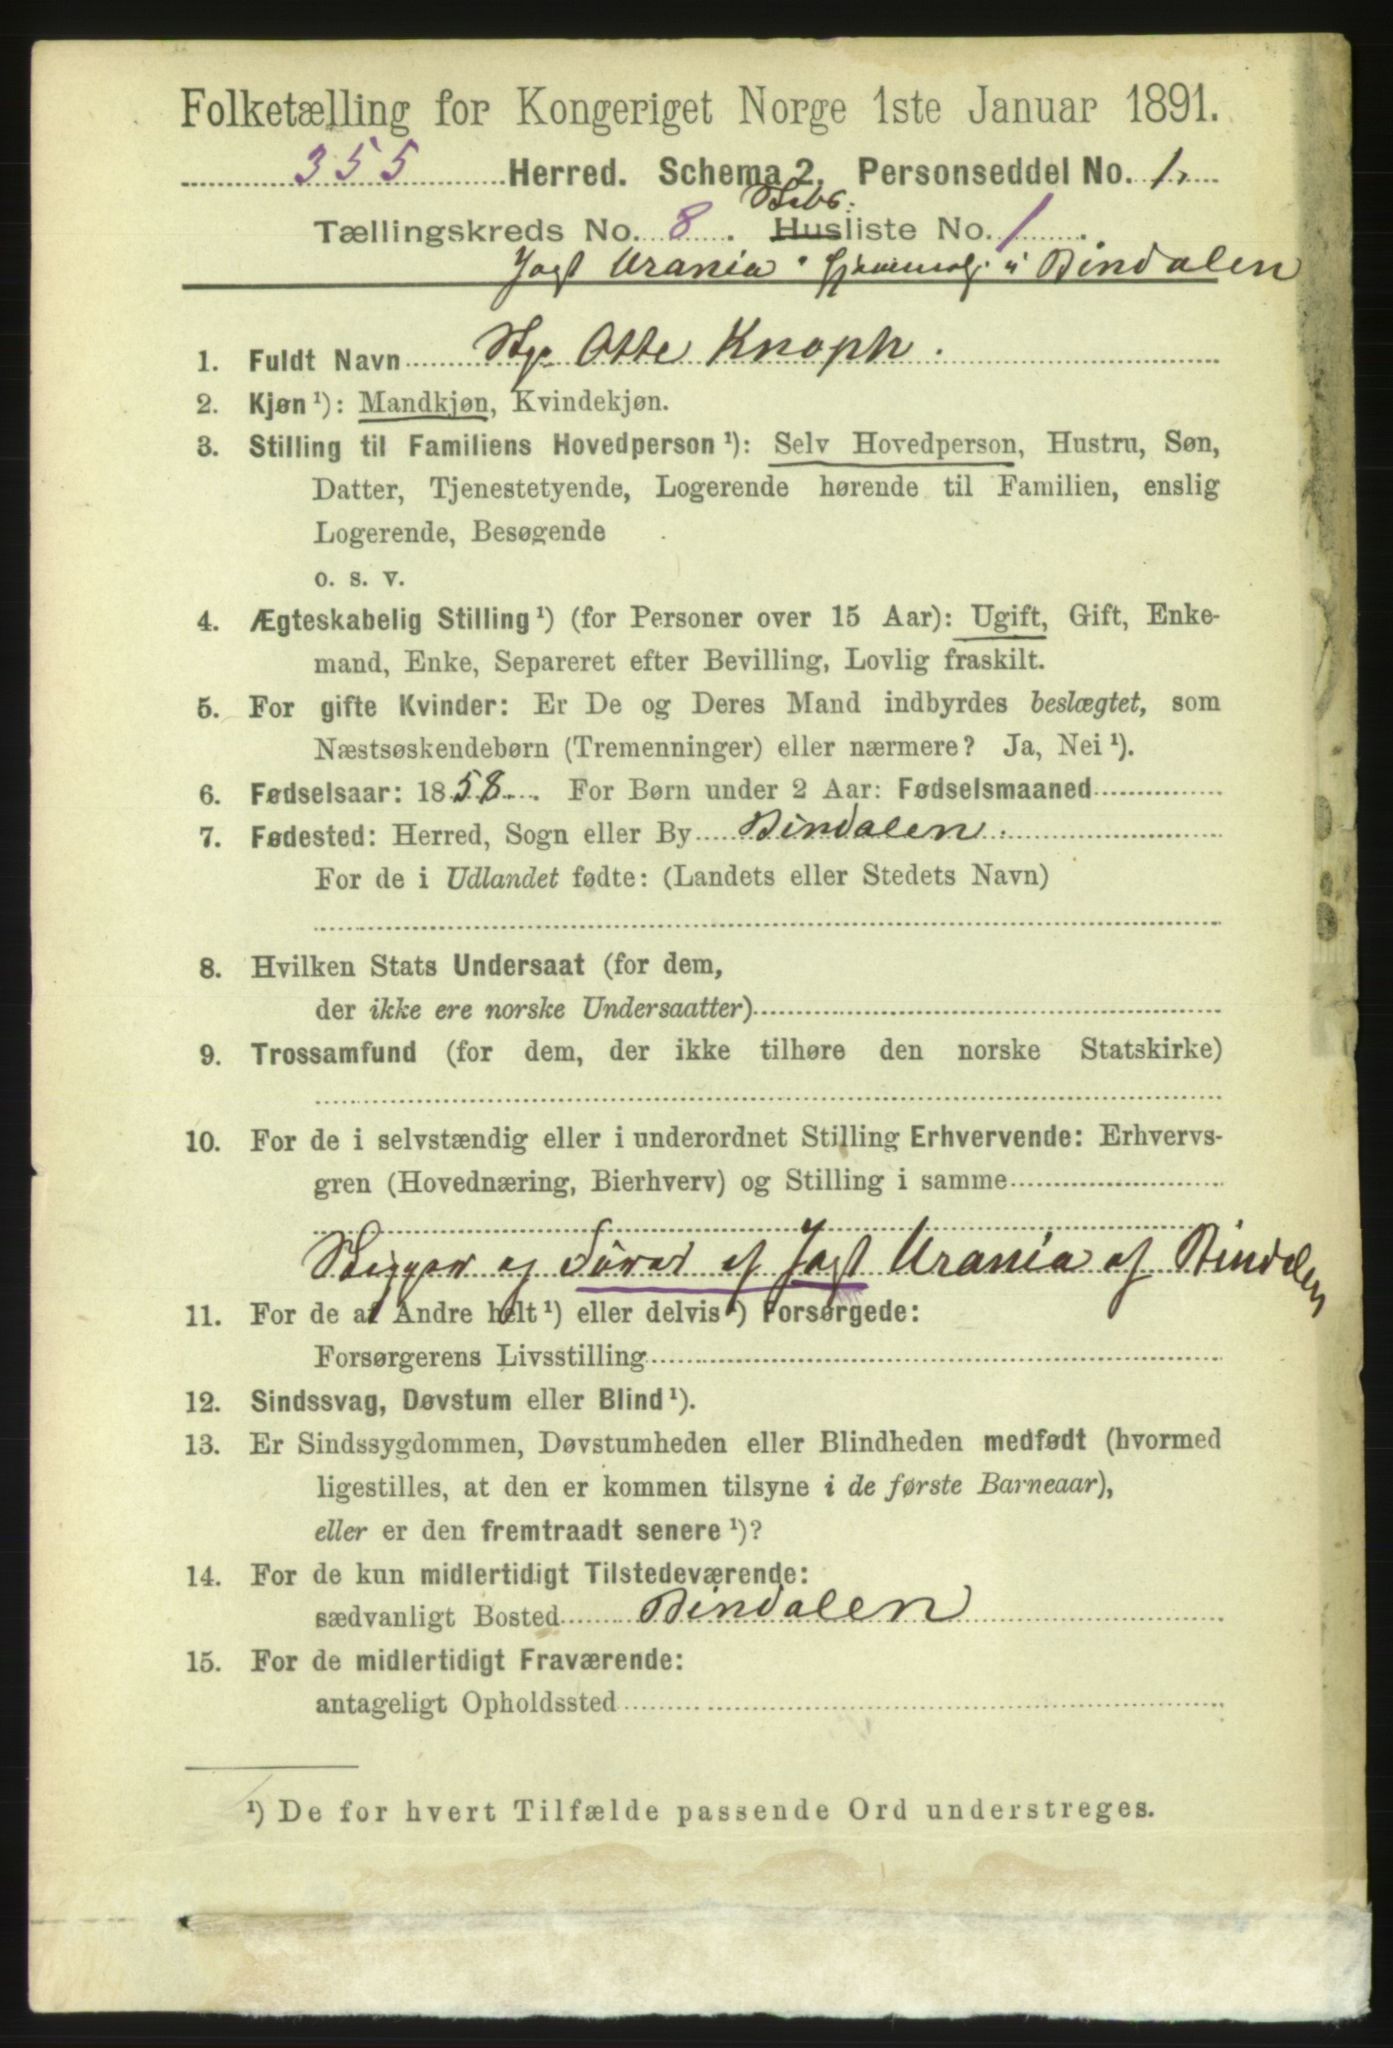 Folketælling for Kongeriget Norge 1ste Januar 1891.
355 Herred. Schema 2. Personseddel No. 1.
Skibs:
Tællingskreds No. 8. Husliste No. 1.
Jagt Urania Hjemmeh. i Bindalen
1. Fuldt Navn Otte Knoph.
2. Kjøn ¹): Mandkjøn, Kvindekjøn.
3. Stilling til Familiens Hovedperson ¹): Selv Hovedperson, Hustru, Søn,
Datter, Tjenestetyende, Logerende hørende til Familien, enslig
Logerende, Besøgende
o. s. v.
4. Ægteskabelig Stilling ¹) (for Personer over 15 Aar): Ugift, Gift, Enke-
mand, Enke, Separeret efter Bevilling, Lovlig fraskilt.
5. For gifte Kvinder: Er De og Deres Mand indbyrdes beslægtet, som
Næstsøskendebørn (Tremenninger) eller nærmere? Ja, Nei ¹).
6. Fødselsaar: 1858. For Børn under 2 Aar: Fødselsmaaned
7. Fødested: Herred, Sogn eller By Bindalen.
For de i Udlandet fødte: (Landets eller Stedets Navn)
8. Hvilken Stats Undersaat (for dem,
der ikke ere norske Undersaatter)
9. Trossamfund (for dem, der ikke tilhøre den norske Statskirke)
10. For de i selvstændig eller i underordnet Stilling Erhvervende: Erhvervs-
gren (Hovednæring, Bierhverv) og Stilling i samme
Skipper og Fører af Jagt Urania af Bindalen
11. For de af Andre helt ¹) eller delvis ¹) Forsørgede:
Forsørgerens Livsstilling
12. Sindssvag, Døvstum eller Blind ¹).
13. Er Sindssygdommen, Døvstumheden eller Blindheden medfødt (hvormed
ligestilles, at den er kommen tilsyne i de første Barneaar),
eller er den fremtraadt senere ¹)?
14. For de kun midlertidigt Tilstedeværende:
sædvanligt Bosted Bindalen
15. For de midlertidigt Fraværende:
antageligt Opholdssted
¹) De for hvert Tilfælde passende Ord understreges.